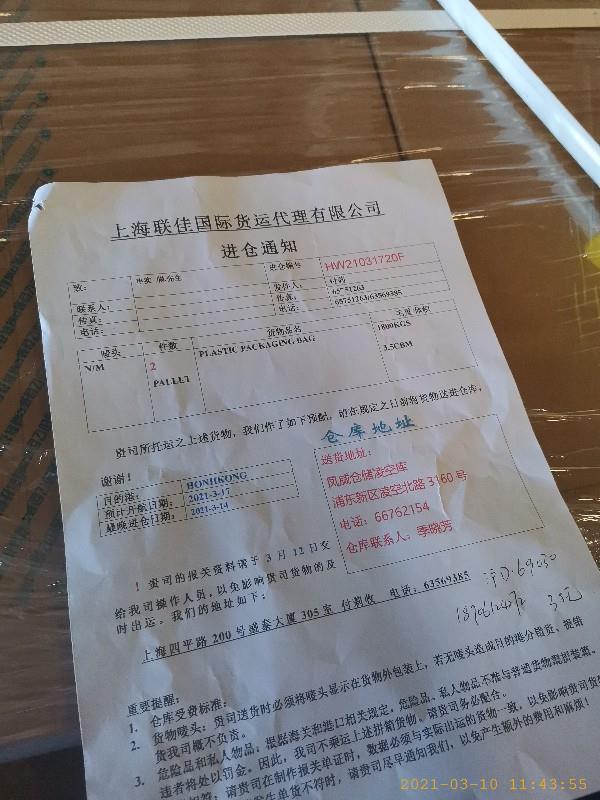 上海联佳国际货运代理有限公司
进仓通知
致：
进仓编号
HW21031720F
联系人：
发件人：
付莉
传真：
传真：
65751263
电话：
电话：
65751263/63569385
唛头
件数
货物品名
毛重/体积
N/M
2
PALLET
PLASTIC PACKAGING BAG
1800KGS
3.5CBM
贵司所托运之上述货物，我们作了如下预配，请在规定之日前将货物送进仓库，
谢谢！
仓库地址
目的港：
HONHKONG
预计开航日期：
2021-3-17
最晚进仓日期：
2021-3-14
送货地址：
凤威仓储凌空库
浦东新区凌空北路 3160 号
电话：66762154
仓库联系人：季晓芳
！ 贵司的报关资料请于 3 月 12 日交
给我司操作人员，以免影响贵司货物的及
时出运。我们的地址如下：
上海四平路 200 号盛泰大厦 305 室 付莉收 电话：63569385
沪D·69030
重要提醒：
1. 仓库受费标准：
2. 货物唛头：贵司送货时必须将唛头显示在货物外包装上，若无唛头造成目的港分错货，提错
货我司概不负责。
3. 危险品和私人物品：根据海关和港口相关规定，危险品、私人物品不准与普通货物混拼装箱。
违者将处以罚金。因此，我司不乘运上述拼箱货物。请贵司务必配合。
请贵司在制作报关单证时，数据必须与实际出运的货物一致，以免影响贵司货物
发生单货不符时，请贵司尽早通知我们，以免产生额外的费用和麻烦！
2021-03-10 11:43:55